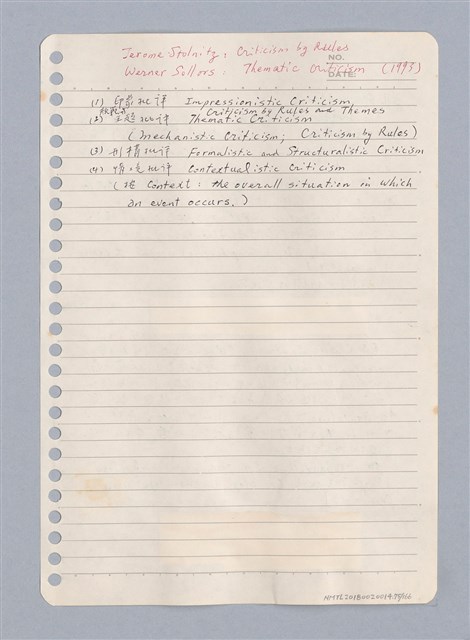 Jerome Stolnitz: Criticism by Rules
NO.
Werner Sollors: Thematic Criticism (1993)
DATE
(1) 印象批評 Impressionistic Criticism
Criticism by Rules and Themes
(2) 主題批評 Thematic Criticism
(Mechanistic Criticism; Criticism by Rules)
(3) 形構批評 Formalistic and Structuralistic Criticism
(4) 情境批評 Contextualistic Criticism
( Context: the overall situation in which
an event occurs.)
NMTL20180020014